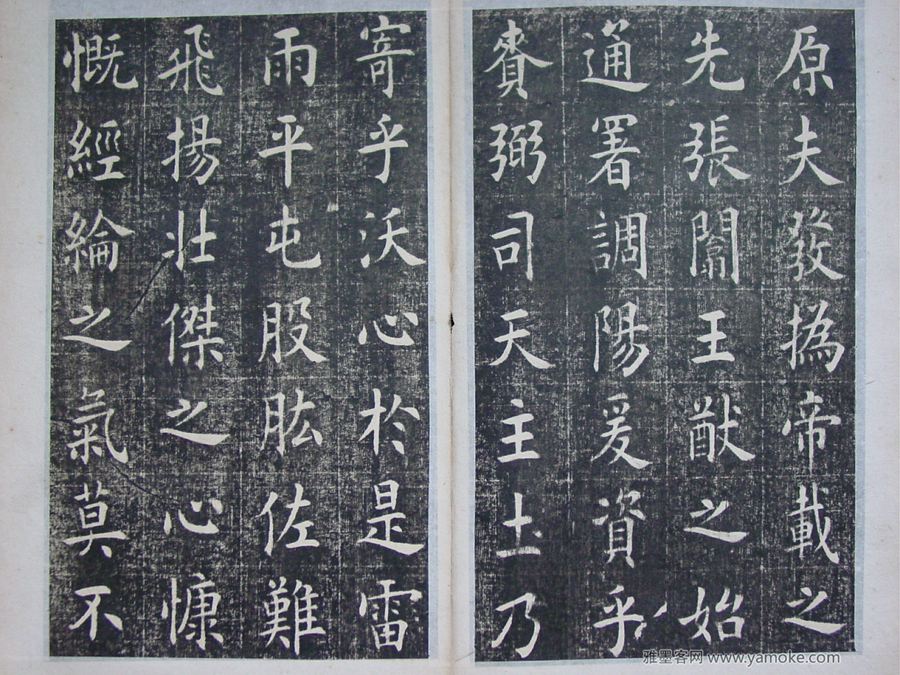 原夫發撝帝載之
先張闡王猷之始
通署調陽爰資乎
賚弼司天主土乃
寄乎沃心於是雷
雨平屯股肱佐難
飛揚壯傑之心慷
慨經綸之氣莫不
雅墨客网 www.yamoke.com